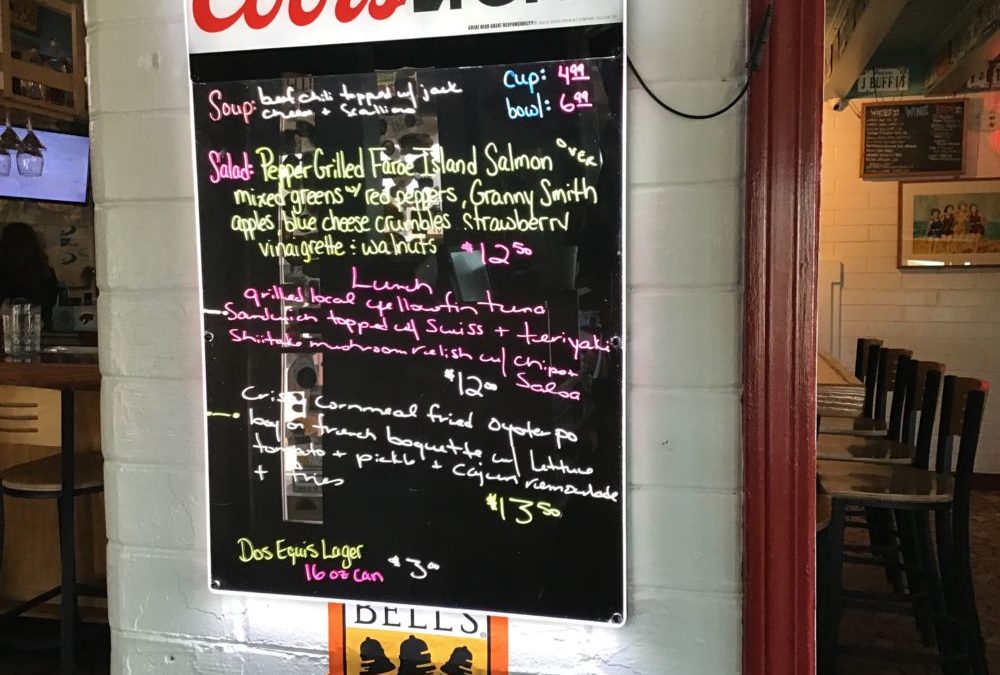 Coors LIGHT
GREAT BEER GREAT RESPONSIBILITY®
Soup: beef chili topped w/ jack
cheese + scallions
cup: 4.99
bowl: 6.99
Salad: Pepper Grilled Faroe Island Salmon over
mixed greens w/ red peppers, Granny Smith
apples, blue cheese crumbles, strawberry
vinaigrette : walnuts $12.50
Lunch
grilled local yellowfin tuna
Sandwich topped w/ Swiss + teriyaki
Shiitake mushroom relish w/ chips +
Salsa
$12.00
Crispy cornmeal fried oyster po
boy on french baguette w/ lettuce
tomato + pickle + Cajun remoulade
+ fries
$13.50
Dos Equis Lager
16 oz can $3.00
BELL'S
J BUFFIT
WINGS